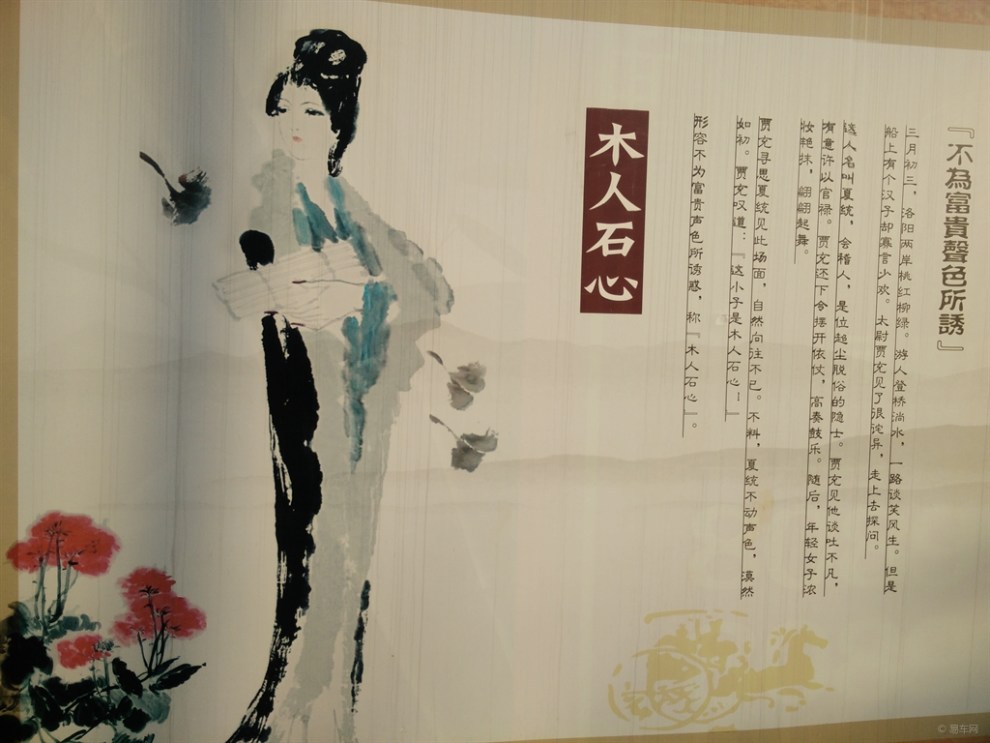 『不為富貴聲色所誘』
三月初三，洛阳两岸桃红柳绿。游人登桥淌水，一路谈笑风生。但是
船上有个汉子却寡言少欢。太尉贾充见了很诧异，走上去探问。
这人名叫夏统，会稽人，是位超尘脱俗的隐士。贾充见他谈吐不凡，
有意许以官禄。贾充还下令摆开依仗，高奏鼓乐。随后，年轻女子浓
妆艳抹，翩翩起舞。
贾充寻思夏统见此场面，自然向往不已。不料，夏统不动声色，漠然
如初。贾充叹道：『这小子是木人石心！』
形容不为富贵声色所诱惑，称『木人石心』。
木人石心
© 易车网